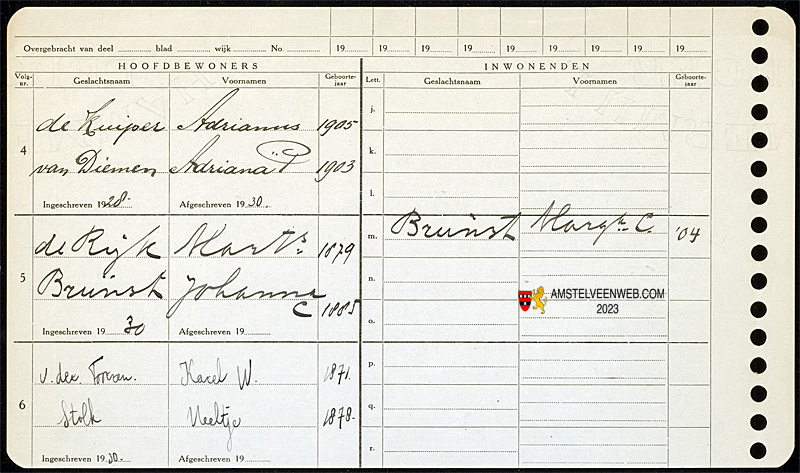 Overgebracht van deel ............ blad ............ wijk ............ No. ............ 19...... 19...... 19...... 19...... 19...... 19...... 19...... 19...... 19......
HOOFDBEWONERS INWONENDEN
Volg-nr. Geslachtsnaam Voornamen Geboorte-jaar Lett. Geslachtsnaam Voornamen Geboorte-jaar
j.
4 de Kuiper Adrianus 1905
k.
van Diemen Adriana P 1903
l.
Ingeschreven 1928. Afgeschreven 1930.
m. Brünst Margr. C. '04
de Rijk Mart. 1879
n.
5 Brünst Johanna C 1885
AMSTELVEENWEB.COM
2023
o.
Ingeschreven 19 30 Afgeschreven 19......
p.
v. der Karel W. 1871.
q.
6 Stolk Neeltje 1878.
r.
Ingeschreven 1930. Afgeschreven 19......